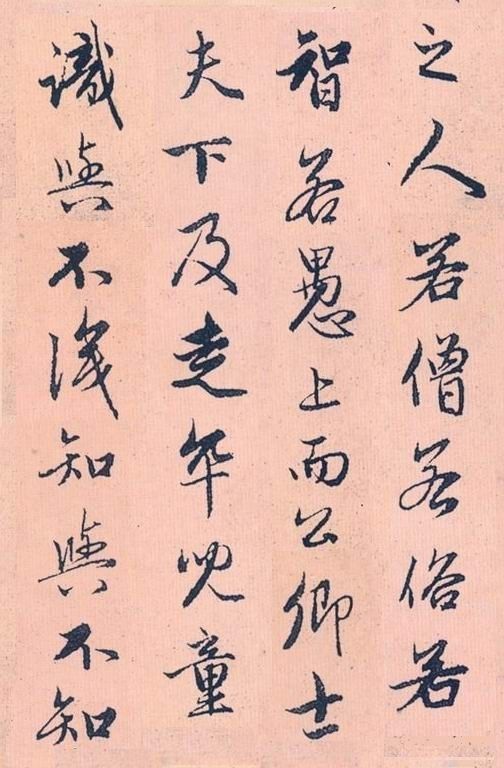 之人若僧若俗若
智若愚上而公卿士
夫下及走卒兒童
識與不識知與不知